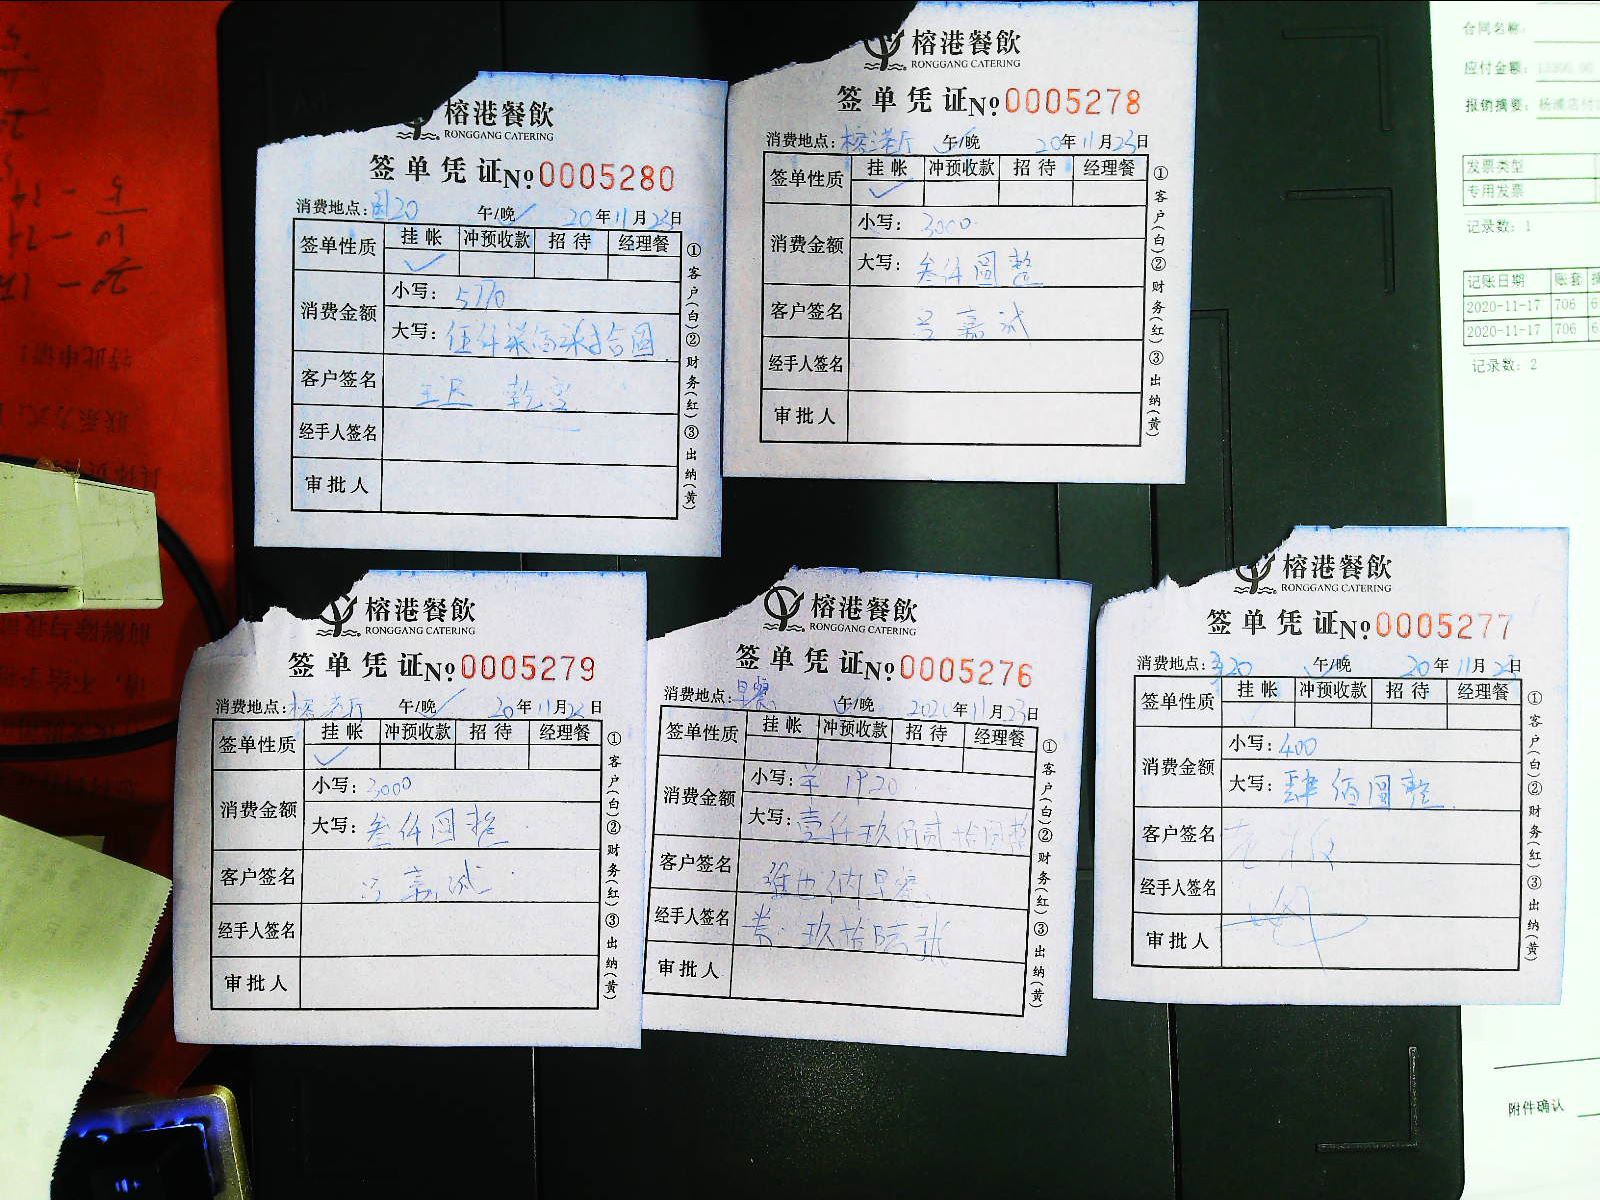 榕港餐飲
RONGGANG CATERING
签单凭证No 0005280
消费地点: 国20 午/晚 20年11月23日
签单性质 挂帐 冲预收款 招待 经理餐
消费金额 小写: 5770
大写: 伍仟柒佰柒拾圆
客户签名
经手人签名
审批人
①客户(白)②财务(红)③出纳(黄)
榕港餐飲
RONGGANG CATERING
签单凭证No 0005278
消费地点: 榕港厅 午/晚 20年11月23日
签单性质 挂帐 冲预收款 招待 经理餐
消费金额 小写: 3000
大写: 叁仟圆整
客户签名 嘉诚
经手人签名
审批人
①客户(白)②财务(红)③出纳(黄)
榕港餐飲
RONGGANG CATERING
签单凭证No 0005279
消费地点: 榕港厅 午/晚 20年11月23日
签单性质 挂帐 冲预收款 招待 经理餐
消费金额 小写: 3000
大写: 叁仟圆整
客户签名 嘉诚
经手人签名
审批人
①客户(白)②财务(红)③出纳(黄)
榕港餐飲
RONGGANG CATERING
签单凭证No 0005276
消费地点: 早餐 午/晚 2020年11月23日
签单性质 挂帐 冲预收款 招待 经理餐
消费金额 小写: 1920
大写: 壹仟玖佰贰拾圆整
客户签名 维也纳早餐
经手人签名 券: 玖拾陆张
审批人
①客户(白)②财务(红)③出纳(黄)
榕港餐飲
RONGGANG CATERING
签单凭证No 0005277
消费地点: 午/晚 20年11月23日
签单性质 挂帐 冲预收款 招待 经理餐
消费金额 小写: 400
大写: 肆佰圆整
客户签名
经手人签名
审批人
①客户(白)②财务(红)③出纳(黄)
合同名称:
应付金额:
报销摘要:
发票类型
专用发票
记录数: 1
记账日期 账套
2020-11-17 706 6
2020-11-17 706 6
记录数: 2
附件确认
特此申请!
联系方式: